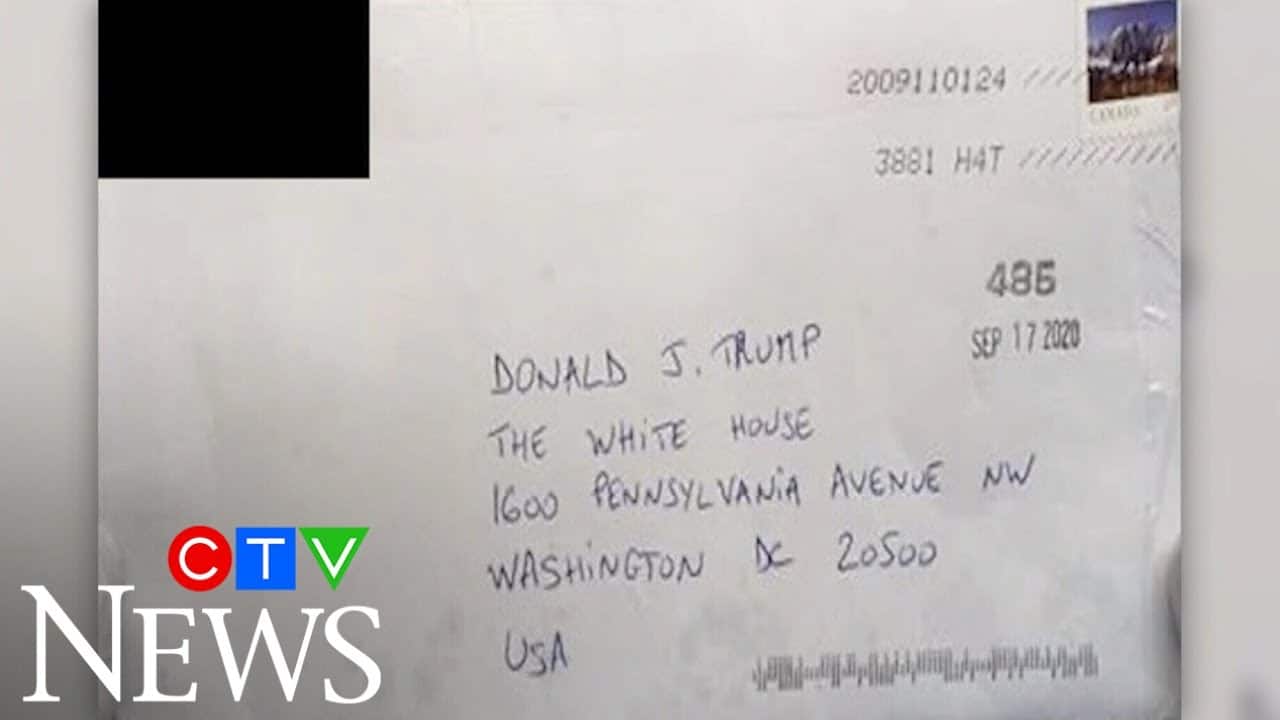 2009110124
CANADA
3881 H4T
486
SEP 17 2020
DONALD J. TRUMP
THE WHITE HOUSE
1600 PENNSYLVANIA AVENUE NW
WASHINGTON DC 20500
USA
CTV
NEWS